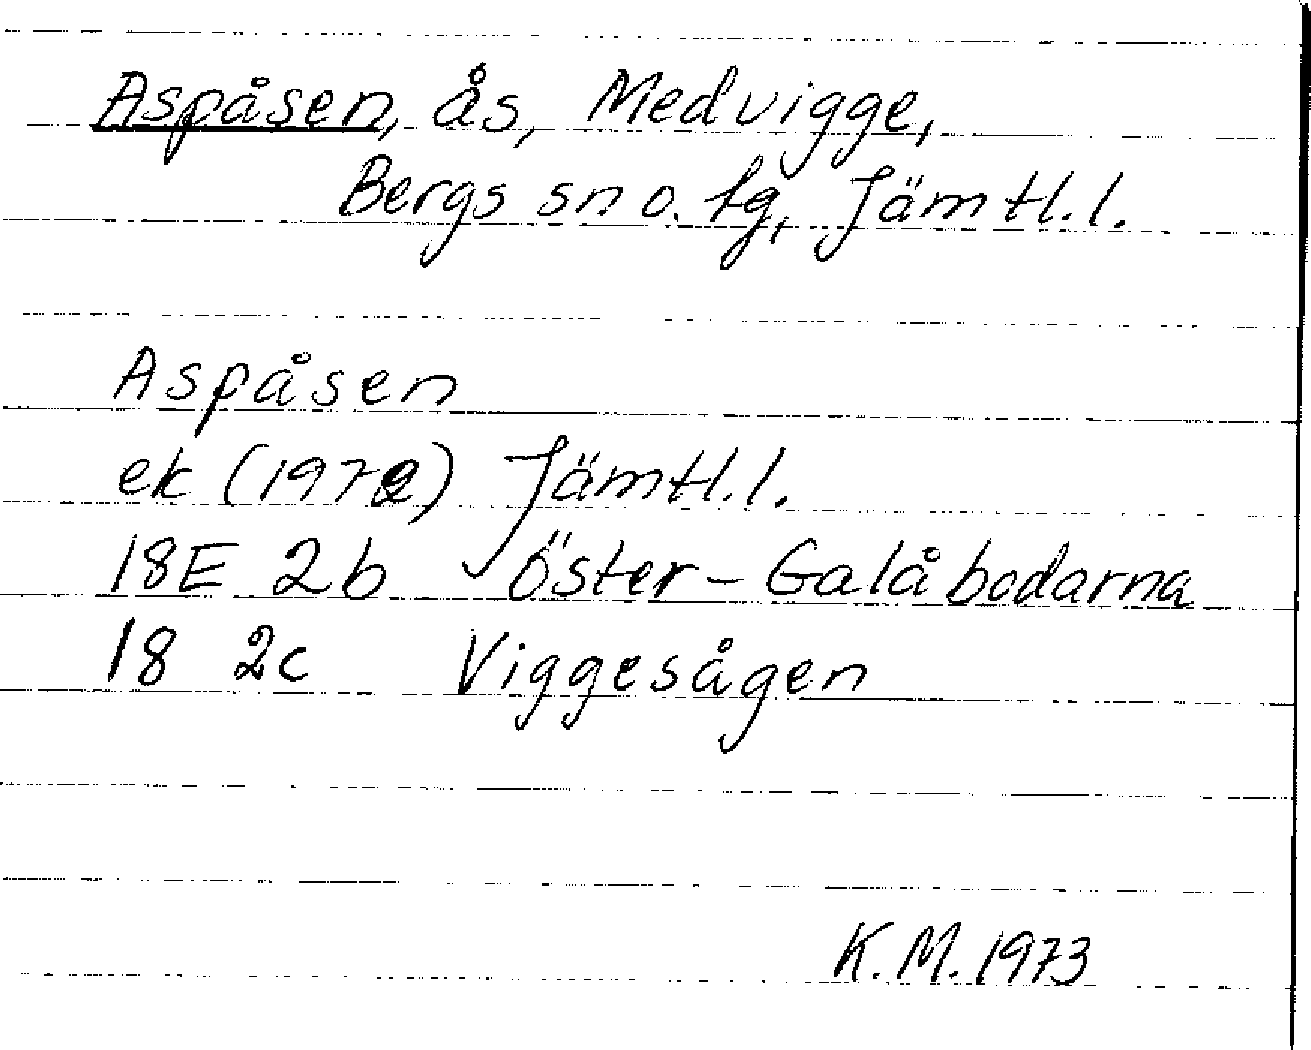 Aspåsen, ås, Medvigge,
Bergs sn o. tg, Jämtl. l.
Aspåsen
ek (1972) Jämtl. l.
18E 2b Öster-Galåbodarna
18 2c Viggesågen
K. M. 1973